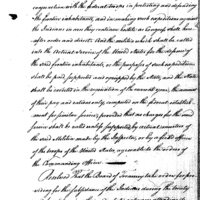 cooperation with the federal troops in protecting and defending
the frontier inhabitants, and in making such expeditions against
the Indians in case they continue hostile as Congress shall here-
after order and direct. That the militia which shall be called
into the Actual Service of the United States for the defence of
the said frontier inhabitants, or the purposes of such expeditions
shall be paid supported and equipped by the States, and the States
shall be credited in the requisition of the current year, the amount
of their pay and rations only, computed on the federal establish-
ment for similar service, provided that no charges for the said
service shall be valid unless supported by actual musters of
the said militia made by the Inspector, or by a field officer
of the troops of the United States agreeable to the orders of
the Commanding Officer
Resolved That the Board of Treasury take order for pro-
viding for the subsistence of the Indians during the treaty